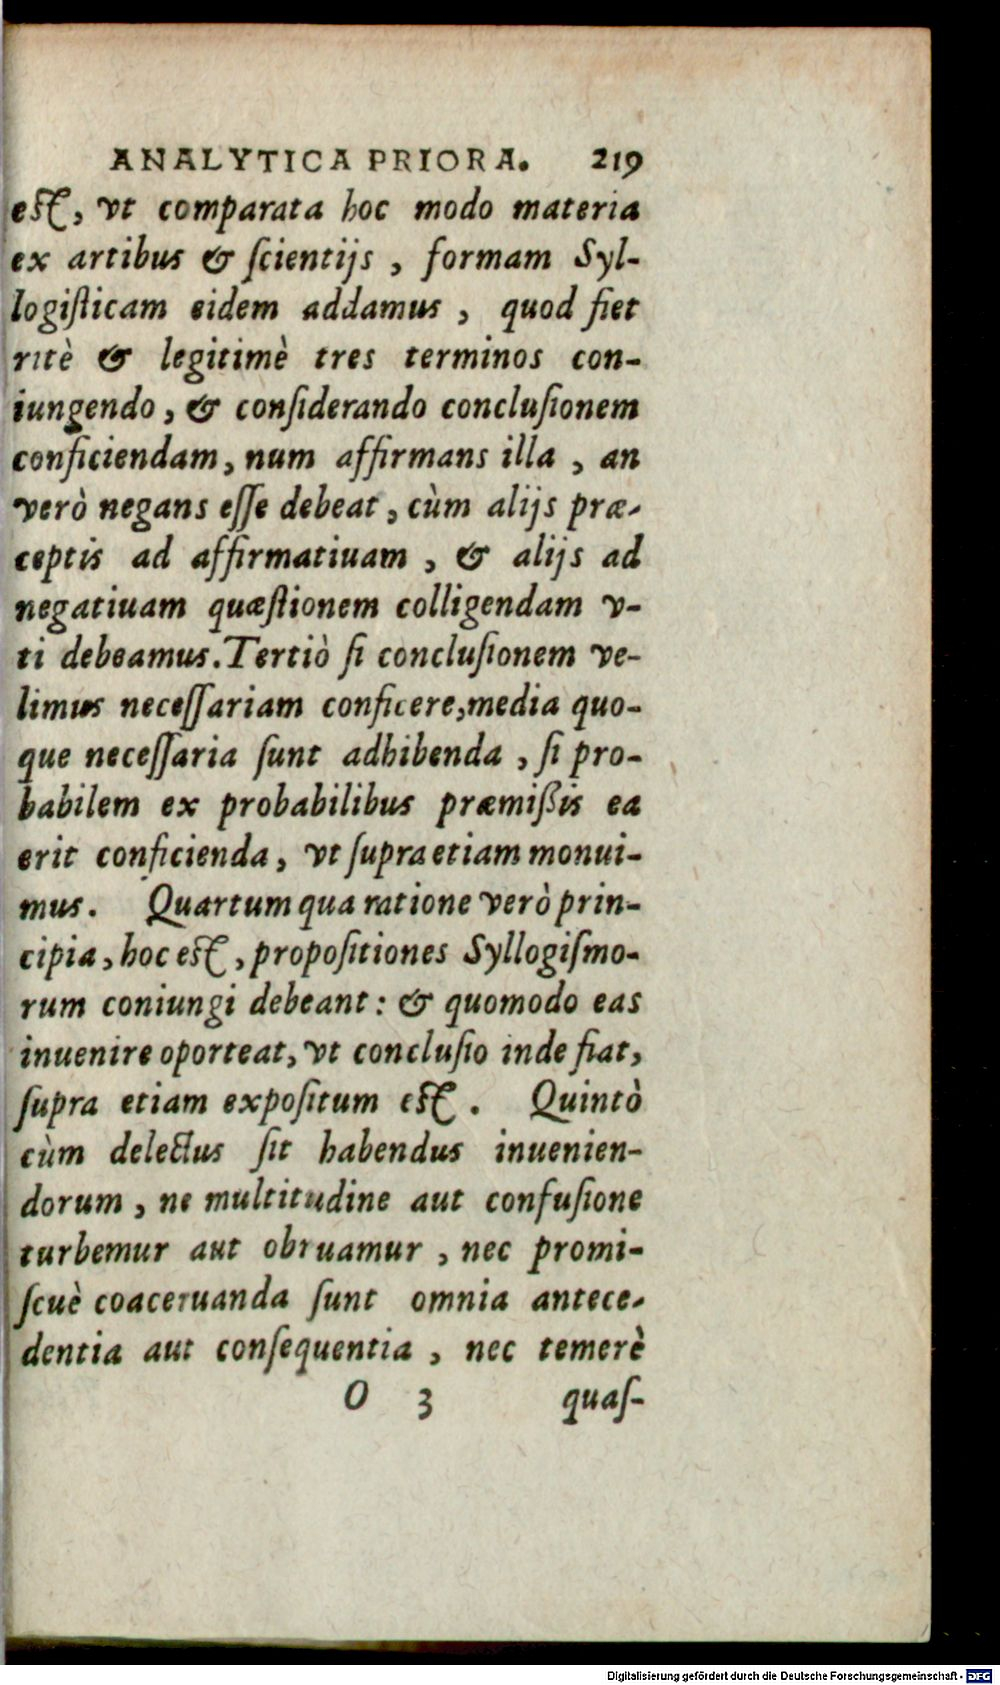 ANALYTICA PRIORA. 219
eſt, vt comparata hoc modo materia
ex artibus & ſcientijs, formam Syl-
logiſticam eidem addamus, quod fiet
ritè & legitimè tres terminos con-
iungendo, & conſiderando concluſionem
conficiendam, num affirmans illa, an
verò negans eſſe debeat, cùm alijs præ-
ceptis ad affirmatiuam, & alijs ad
negatiuam quæſtionem colligendam v-
ti debeamus. Tertiò ſi concluſionem ve-
limus neceſſariam conficere, media quo-
que neceſſaria ſunt adhibenda, ſi pro-
babilem ex probabilibus præmißis ea
erit conficienda, vt ſupra etiam monui-
mus. Quartum qua ratione verò prin-
cipia, hoc eſt, propoſitiones Syllogiſmo-
rum coniungi debeant: & quomodo eas
inuenire oporteat, vt concluſio inde fiat,
ſupra etiam expoſitum eſt. Quintò
cùm delectus ſit habendus inuenien-
dorum, ne multitudine aut confuſione
turbemur aut obruamur, nec promi-
ſcuè coaceruanda ſunt omnia antece-
dentia aut conſequentia, nec temerè
O 3 quaſ-
Digitalisierung gefördert durch die Deutsche Forschungsgemeinschaft - DFG